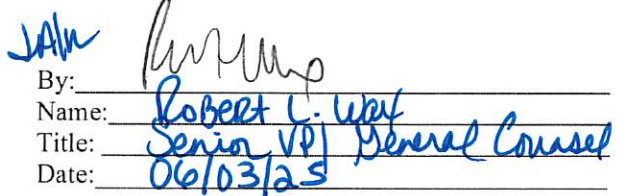 By:
Name: Robert L. Wax
Title: Senior VP, General Counsel
Date: 06/03/25